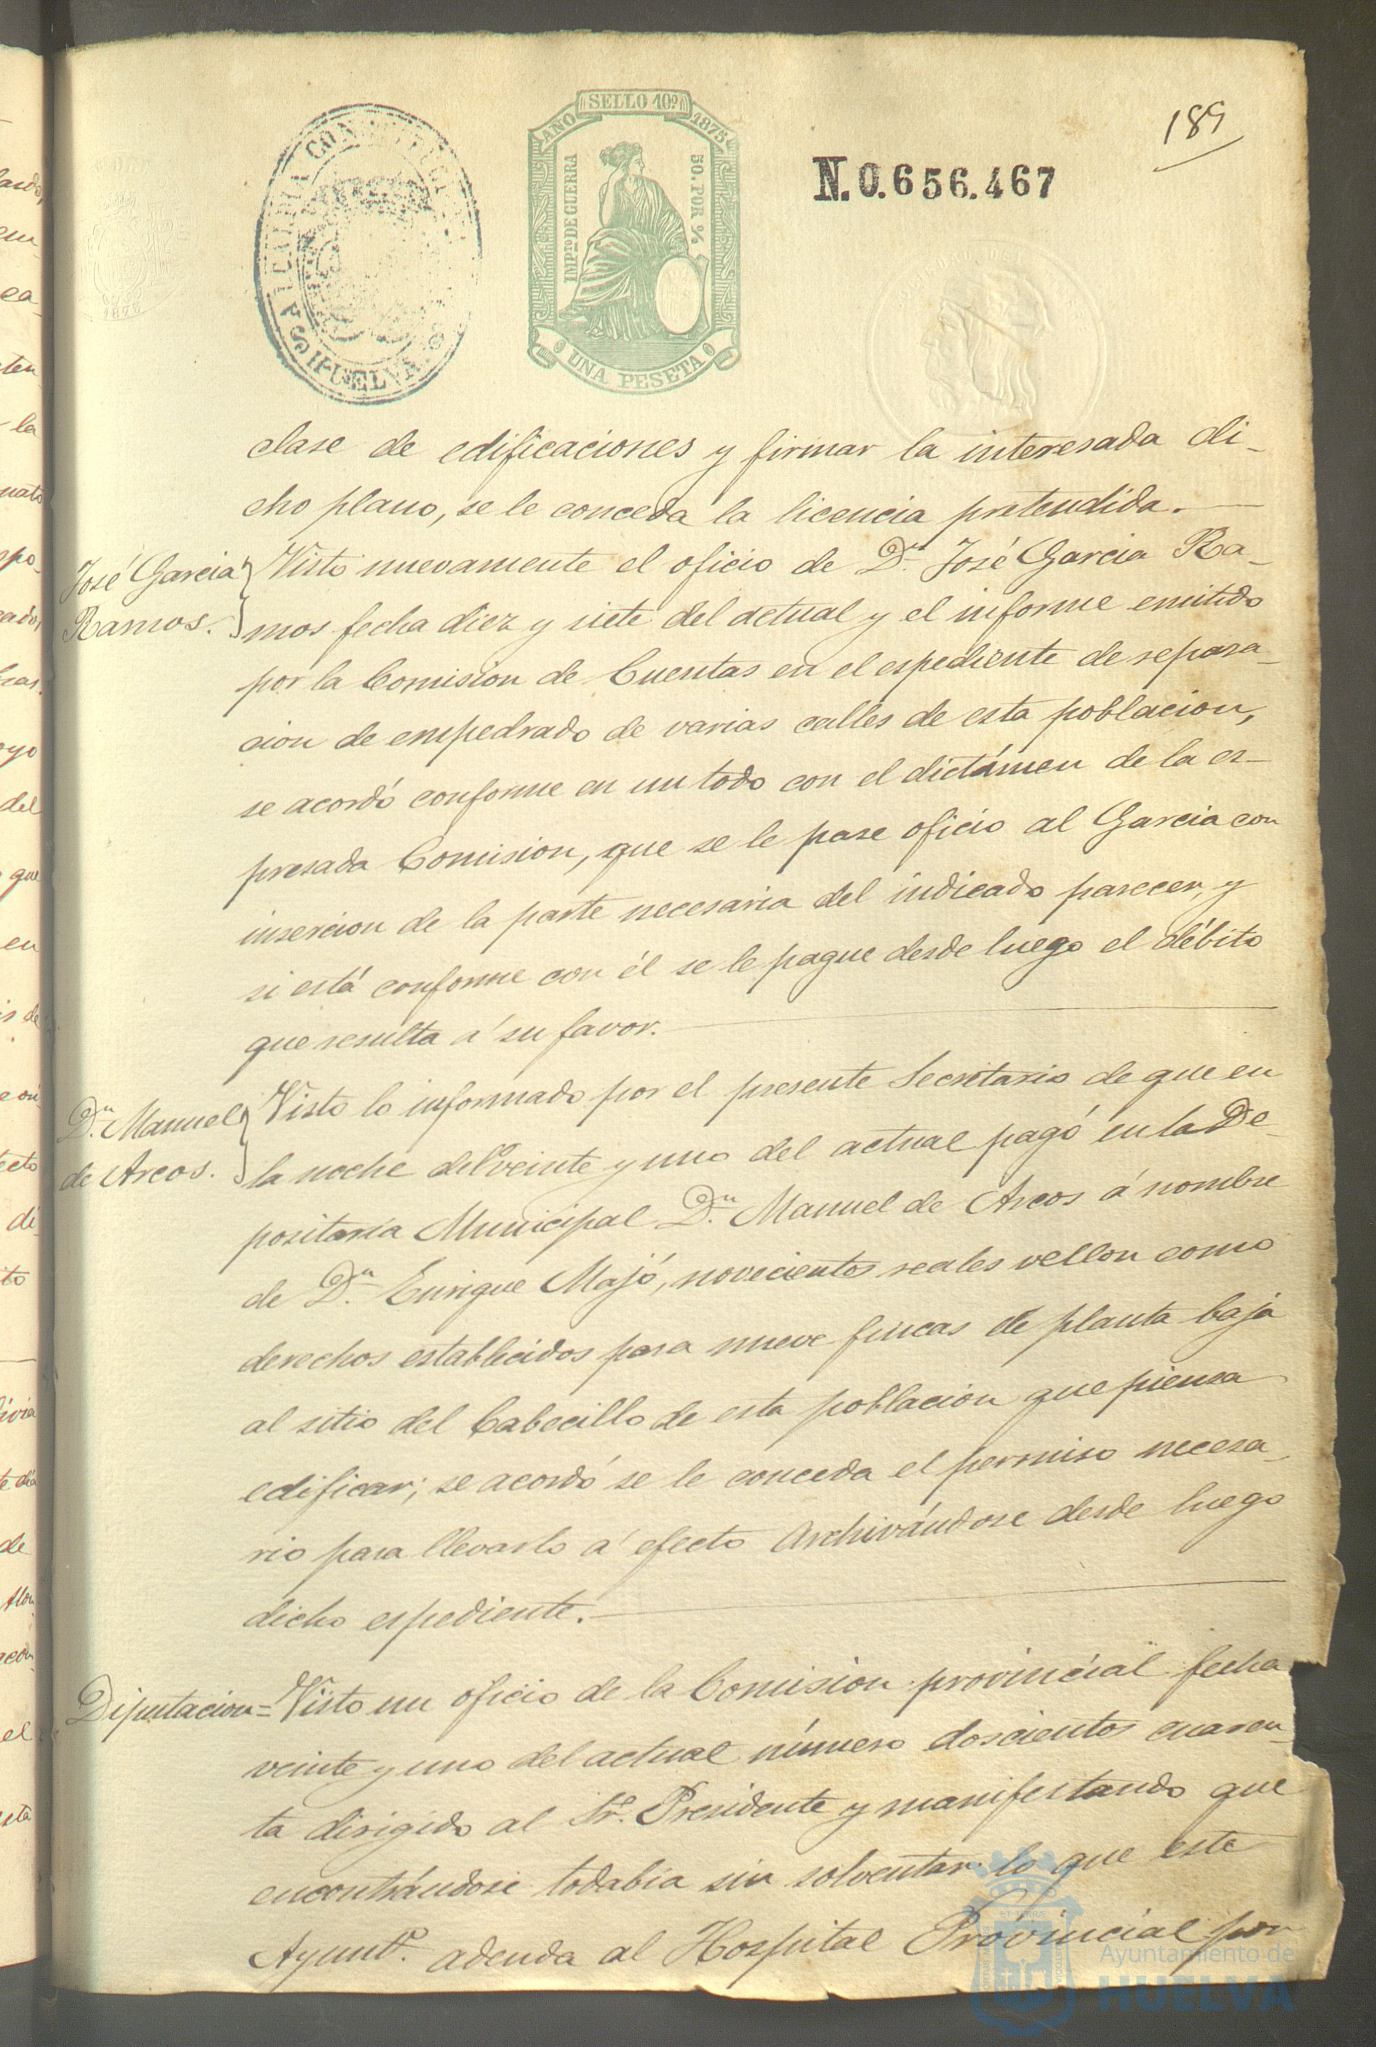 189
SELLO 10º
AÑO 1875
IMPTO DE GUERRA
50. POR %
UNA PESETA
N.0.656.467
HUELVA
clase de edificaciones y firmar la interesada di-
cho plano, se le conceda la licencia pretendida.
José Garcia
Ramos.
Visto nuevamente el oficio de Dn. José Garcia Ra-
mos fecha diez y siete del actual y el informe emitido
por la Comision de Cuentas en el espediente de repara-
cion de empedrado de varias calles de esta poblacion,
se acordó conforme en un todo con el dictámen de la es-
presada Comision, que se le pase oficio al Garcia con
insercion de la parte necesaria del indicado parecer, y
si está conforme con él se le pague desde luego el débito
que resulta á su favor.
Dn. Manuel
de Arcos.
Visto lo informado por el presente Secretario de que en
la noche del veinte y uno del actual pagó en la De-
positaria Municipal Dn. Manuel de Arcos á nombre
de Dn. Enrique Majó, novecientos reales vellon como
derechos establecidos para nueve fincas de planta baja
al sitio del Cabecillo de esta poblacion que piensa
edificar; se acordó se le conceda el permiso necesa-
rio para llevarlo á efecto archivándose desde luego
dicho espediente.
Diputacion=
Visto un oficio de la Comision provincial fecha
veinte y uno del actual número doscientos cuaren-
ta dirigido al Sr. Presidente y manifestando que
encontrándose todabia sin solventar lo que este
Ayunto. adeuda al Hospital Provincial por
Ayuntamiento de
HUELVA